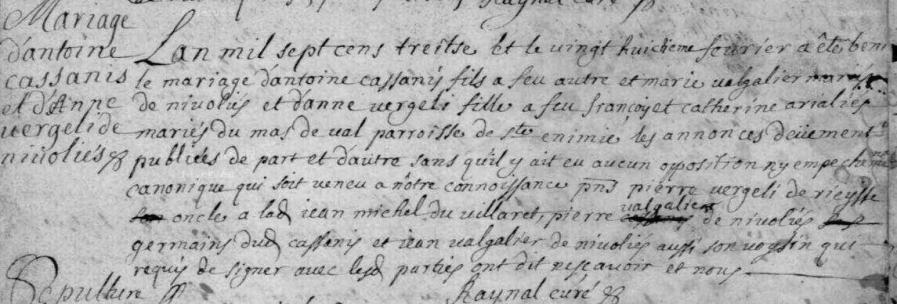 Raynal curé
Mariage
d'antoine
cassanis
et d'Anne
vergeli de
nivoliés
Lan mil sept cens treitse et le vingt huictieme fevrier a été beni
le mariage d'antoine cassanis fils a feu autre et marie valgalier mariés
de nivoliés et d'anne vergeli fille a feu françoy et catherine arialiés
mariés du mas de val parroisse de ste enimie les annonces deüement
publiées de part et d'autre sans qu'il y ait eu aucun opposition ny empechemt
canonique qui soit veneu a nôtre connoissance pns pierre vergeli de rieysse
oncle a lad jean michel du villaret, pierre valgalier de nivoliés
germains dud cassanis et jean valgalier de nivoliés aussi son voysin qui
requis de signer avec lesd parties ont dit ne scavoir et nous
Sepulture
Raynal curé